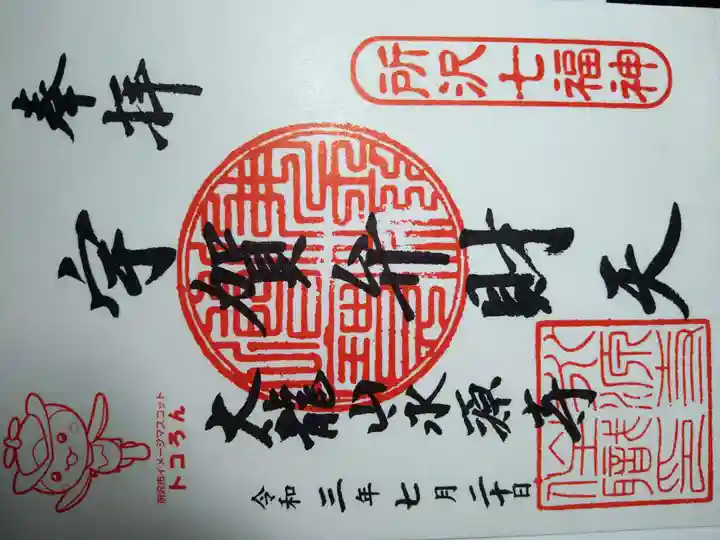 所沢七福神
奉拝
宇賀弁財天
大龍山永源寺
令和三年七月二十日
所沢市イメージマスコット
トコろん